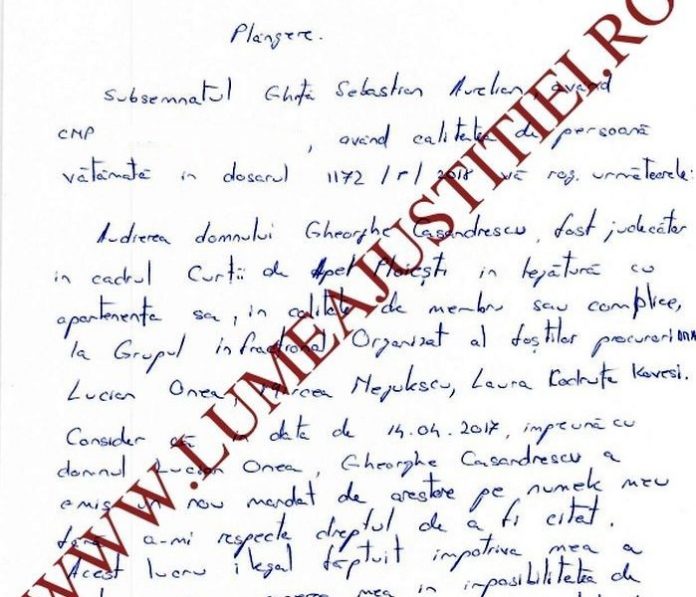 Plângere.
Subsemnatul Ghiță Sebastian Aurelian, având
CMP
, având calitatea de persoană
vătămată în dosarul 1172/P/2018 vă rog următoarele:
Audierea domnului Gheorghe Casandrescu, fost judecător
în cadrul Curții de Apel Ploiești în legătură cu
apartenența sa, în calitate de membru sau complice,
la Grupul infracțional Organizat al foștilor procurori DNA
Lucian Onea, Mircea Negulescu, Laura Codruța Kovesi.
Consider că în data de 14.04.2017, împreună cu
domnul Lucian Onea, Gheorghe Casandrescu a
emis un nou mandat de arestare pe numele meu
fără a-mi respecta dreptul de a fi citat.
Acest lucru ilegal făptuit împotriva mea a
mea în imposibilitatea de
WWW.LUMEAJUSTITIEI.RO